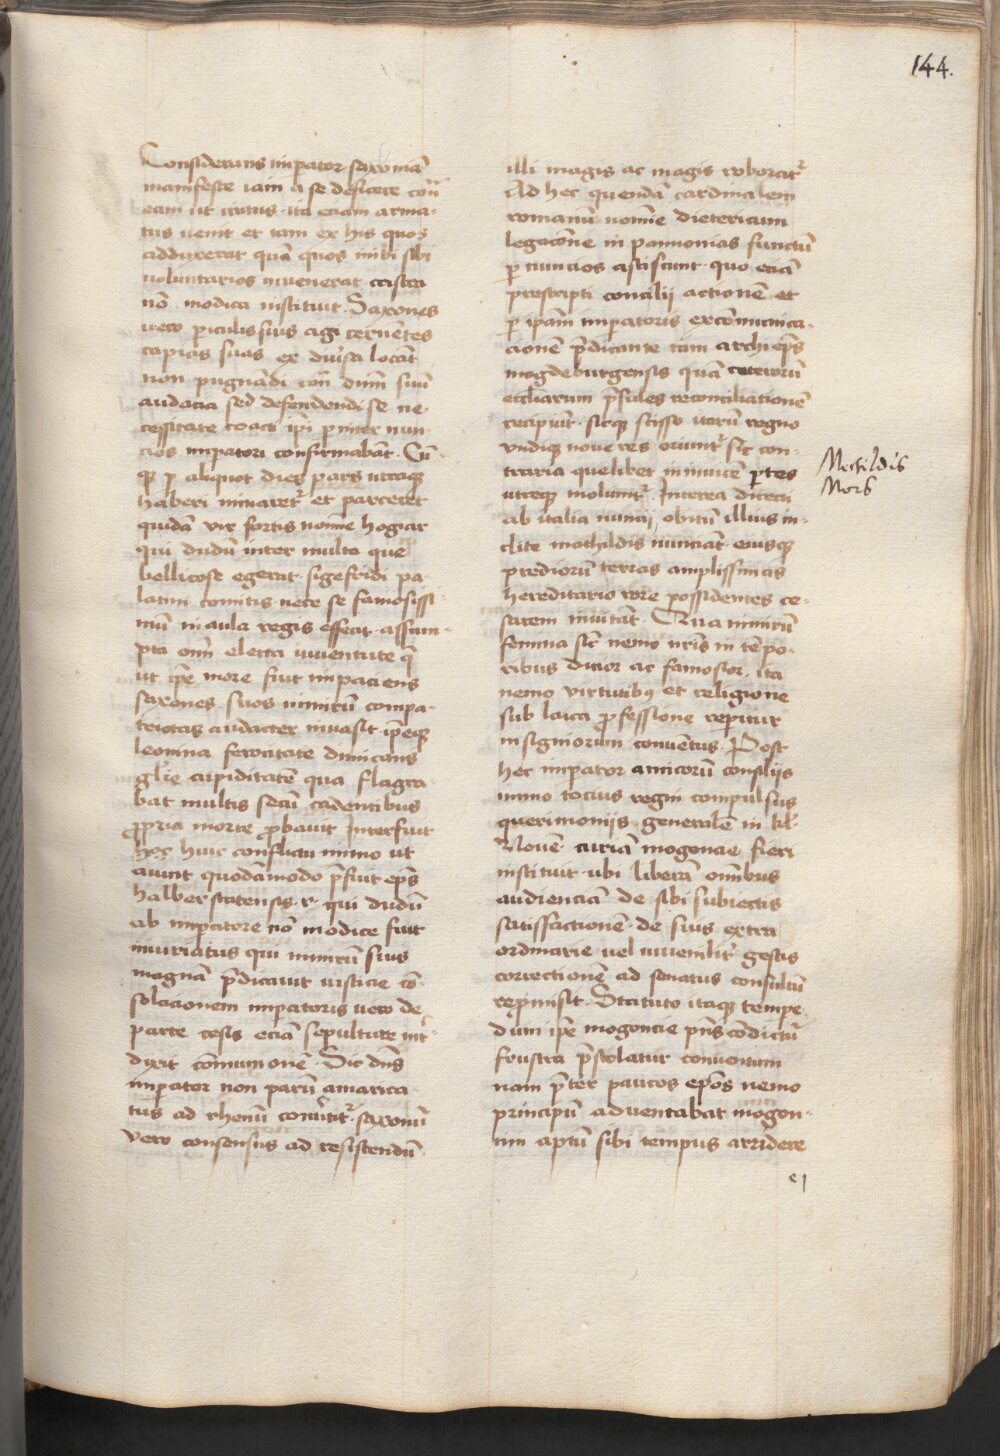 144.
Considerans impator saxoniā
manifeste iam a se deficere cōn
eam ut iratus ita eciam arma-
tus uenit et tam ex his quos
adduxerat quā quos inibi sibi
uoluntarios inuenerat castra
nō modica instituit Saxones
uero piculissius agi cernētes
copias suas ex diuiso locāt
non pugnādi con dnm suū
audacia sed defendendi se ne-
cessitate coacti ipi p inter nun
cios impatori confirmabāt. Cū
qȝ p aliquot dies pars utraqȝ
haberi minaret᷑ et parceret
quidā vir fortis nomine hogiar
qui dudū inter multa que
bellicose egerat sigefridi pa-
latini comitis nece se famosissi-
mū in aula regis effecit assum-
pta oīm electa iuuentute q̄
ut ipe more fuit impaciens
saxones suos nimirū compa-
triotas audacter inuasit ipeqȝ
leonina ferocitate dimicans
glīe cupiditatē qua flagra-
bat multis secū cadentibus
ꝓpria morte ꝓbauit Interfuit
hoc huic conflictu immo ut
aiunt quodāmodo p̄fuit ep̄s
halberstatensis r. qui dudū
ab impatore nō modice fuit
iniuriatus qui nimirū suis
magnā p̄dicauit iusticie cō-
solacionem impatoris uero de
parte cesis eciā sepulture int᷑-
dixit cōmunionē. Sic dn̄s
impator non parū amarica-
tus ad rhenū conu̇tit᷑ saxonū
vero consensus ad resistendū
illi magis ac magis roborat᷑
Ad hec quendā cardinalem
romanū nomīe dietericum
legacōne in pannonias functū
p nuncios asciscunt quo eciā
prescripti concilij actionē et
p ipām impatoris excōmunica-
cionē p̄dicante tam archiep̄s
magdeburgensis quā ceterorū
eccliarum p̄sules reconciliationē
recipiūt. sicqȝ scisso iterū regno
vndiqȝ noue res oriunt᷑ sic con-
traria quelibet inuicē ꝑtes
utreqȝ moliunt᷑. Interea directi
ab italia nuncij obitū illius in-
clite mathildis nunciāt eiusqȝ
prediorū terras amplissimas
hereditario iore possidentes ce-
sarem inuitāt. Qua nimirū
femina sic̄ nemo nr̄is in tēpo-
ribus ditior ac famosior. ita
nemo virtutibȝ et religione
sub laica ꝓfessione repitur
insigniorum conuētus. Post
hec impator amicorū consilijs
immo tocius regni compulsus
querimonijs. generalē in kl᷑
Nouē. curiā mogoncie fieri
instituit ubi liberā omībus
audienciā de sibi subiectis
satisfactionē de suis extra
ordinarie uel iuuenilit᷑ gestis
correctionē ad senatus consultū
repmisit. Statuto itaqȝ tempe
dum ipe mogoncie pn̄s cōdictū
frustra p̄stolatur conuentum
nam p̄ter paucos ep̄os nemo
principū aduentabat mogon-
tini aptū sibi tempus arridere
Mertildis
Mors